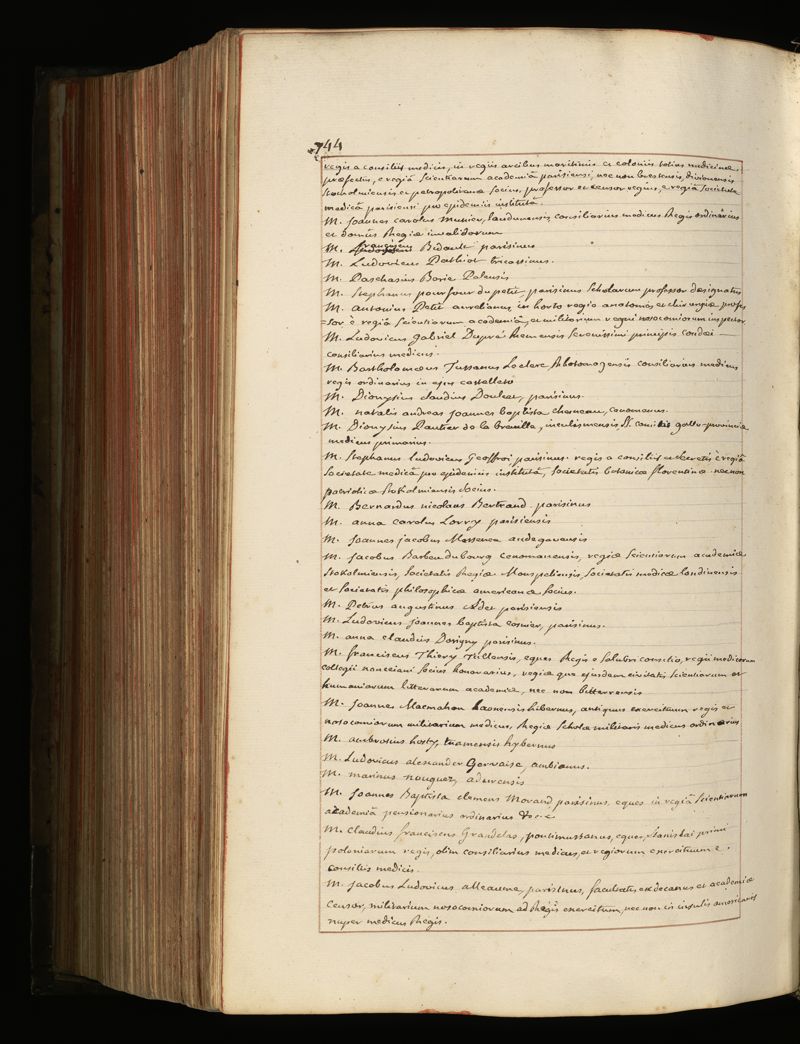 744
regis a consiliis medicis, in regiis arcibus maritimis et coloniis totius medicinæ
præfectus, e regiâ scientiarum academiâ parisiensi, nec non brestensis, divionensis
stocholmiensis et petropolitanæ socius, professor et censor regius, e regiâ societate
medicâ parisiensi pro epidemiis institutâ.
M. Joannes carolus Munier, laudunensis, consiliarius medicus Regis ordinarius
et domûs Regiæ invalidorum
M. franciscus Bidault parisinus
M. Ludovicus Pathiot tricassinus.
M. Paschasius Borie Palensis
M. Stephanus pourfour du petit parisinus Scholarum professor designatus
M. antonius Petit aurelianus, in horto regio anatomes et chirurgiæ profes
=sor è regiâ scientiarum academiâ, et militarium regni nosocomiorum inspector
M. Ludovicus gabriel Dupré Remensis serenissimi principis condæi
consiliarius medicus.
M. Bartholomæus Tussanus Leclerc Rhotomagensis consiliarius medicus
regis ordinarius in ejus castelleto
M. Dionysius claudius Doulcet, parisinus.
M. natalis andreas Joannes baptista chesneau, cenomanus.
M. Dionysius Pautier de la breuille, inculismensis, comitis gallo-provinciæ
medicus primarius.
M. Stephanus ludovicus Geoffroi parisinus. regis a consiliis et secretis è regiâ
societate medicâ pro epidemiis institutâ, societatis botanicæ florentinæ nec non
patrioticæ stokolmiensis socius.
M. Bernardus nicolaus Bertrand parisinus
M. anna carolus Lorry parisiensis
M. Joannes jacobus Messence andegavensis
M. Jacobus Barbeu dubourg cenomanensis, regiæ scientiarum academiæ
stokolmiensis, societatis Regiæ Monspeliensis, societatis medicæ londinensis
et societatis philosophicæ americanæ socius.
M. Petrus augustinus Adet parisiensis
M. Ludovicus Joannes baptista cosnier, parisinus.
M. anna claudius Dorigny parisinus.
M. franciscus Thiery Tullensis, eques Regis e salubri consilio, regii medicorum
collegii nanceiani socius honorarius, regiæ que ejusdem civitatis scientiarum et
humaniorum litterarum academiæ, nec non bitterrensis
M. Joannes Macmahon hibernus, antiquus exercituum regis et
nosocomiorum militarium medicus, Regiæ Scholæ militaris medicus ordinarius
M. ambrosius hosty, tuamensis hybernus
M. Ludovicus alexander Gervaise, ambianus.
M. marinus nouguez, adurensis
M. Joannes Baptista clemens Morand parisinus, eques in regiâ scientiarum
academiâ pensionarius ordinarius &c.
M. Claudius franciscus Grandclas, pontimussanus, eques, stanislai primi
poloniarum regis, olim consiliarius medicus, et regiorum exercituum e
consiliis medicis.
M. Jacobus Ludovicus alleaume, parisinus, facultatis exdecanus et academiæ
Censor, militarium nosocomiorum ad Regis exercitum, nec non in insulis americanis
nuper medicus Regis.